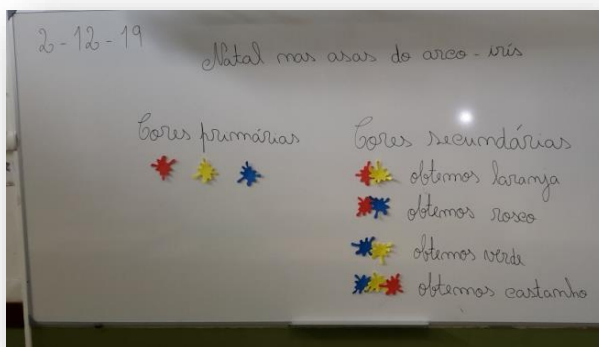 2-12-19
Natal nas asas do arco-íris
Cores primárias
Cores secundárias
obtemos laranja
obtemos roxo
obtemos verde
obtemos castanho